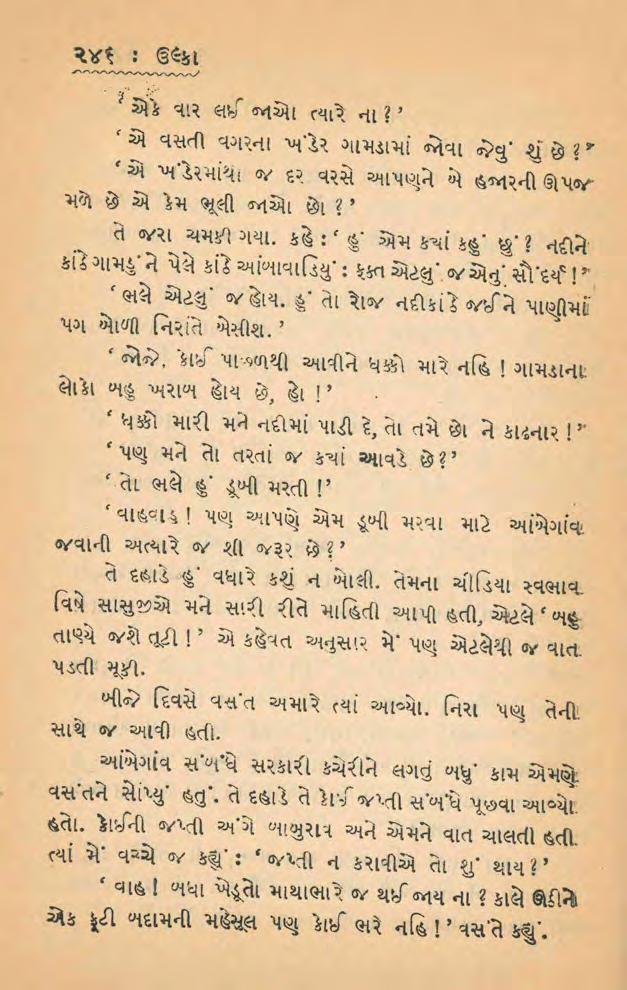 ૨૪૬ : ઉલ્કા
‘ એકે વાર લઈ જાઓ ત્યારે ના ? ’
‘ એ વસતી વગરના ખંડેર ગામડામાં જોવા જેવું શું છે ? ’
‘ એ ખંડેરમાંથી જ દર વરસે આપણને બે હજારની ઊપજ
મળે છે એ કેમ ભૂલી જાઓ છો ? ’
તે જરા ચમકી ગયા. કહે : ‘ હું એમ કયાં કહું છું ? નદીને
કાંઠે ગામડું ને પેલે કાંઠે આંબાવાડિયું : ફક્ત એટલું જ એનું સૌંદર્ય ! ’
‘ ભલે એટલું જ હોય. હું તો રોજ નદીકાંઠે જઈને પાણીમાં
પગ બોળી નિરાંતે બેસીશ. ’
‘ જોજે, કોઈ પાછળથી આવીને ધક્કો મારે નહિ ! ગામડાના
લોકો બહુ ખરાબ હોય છે, હો ! ’
‘ ધક્કો મારી મને નદીમાં પાડી દે, તો તમે છો ને કાઢનાર ! ’
‘ પણ મને તો તરતાં જ કયાં આવડે છે ? ’
‘ તો ભલે હું ડૂબી મરતી ! ’
‘ વાહવાહ ! પણ આપણે એમ ડૂબી મરવા માટે આંબેગાંવ
જવાની અત્યારે જ શી જરૂર છે ? ’
તે દહાડે હું વધારે કશું ન બોલી. તેમના ચીડિયા સ્વભાવ
વિષે સાસુજીએ મને સારી રીતે માહિતી આપી હતી, એટલે ‘ બહુ
તાણ્યે જશે તૂટી ! ’ એ કહેવત અનુસાર મેં પણ એટલેથી જ વાત
પડતી મૂકી.
બીજે દિવસે વસંત અમારે ત્યાં આવ્યો. નિરા પણ તેની
સાથે જ આવી હતી.
આંબેગાંવ સંબંધે સરકારી કચેરીને લગતું બધું કામ એમણે
વસંતને સોંપ્યું હતું. તે દહાડે તે કોઈ જપ્તી સંબંધે પૂછવા આવ્યો
હતો. કોઈની જપ્તી અંગે બાબુરાવ અને એમને વાત ચાલતી હતી
ત્યાં મેં વચ્ચે જ કહ્યું : ‘ જપ્તી ન કરાવીએ તો શું થાય ? ’
‘ વાહ ! બધા ખેડૂતો માથાભારે જ થઈ જાય ના ? કાલે ઊઠીને
એક ફૂટી બદામની મહેસૂલ પણ કોઈ ભરે નહિ ! ’ વસંતે કહ્યું.